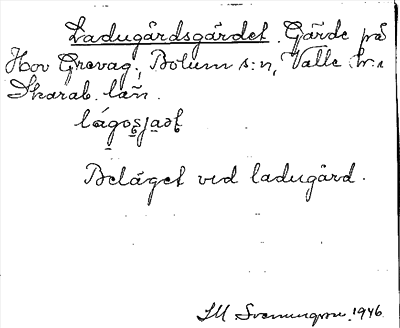 Ladugårdsgärdet. Gärde på
Hov Grevag., Bolum s:n, Valle hr.
Skarab. län.
lágosjaat
Beläget ved ladugård.
SM Svenungsson, 1946